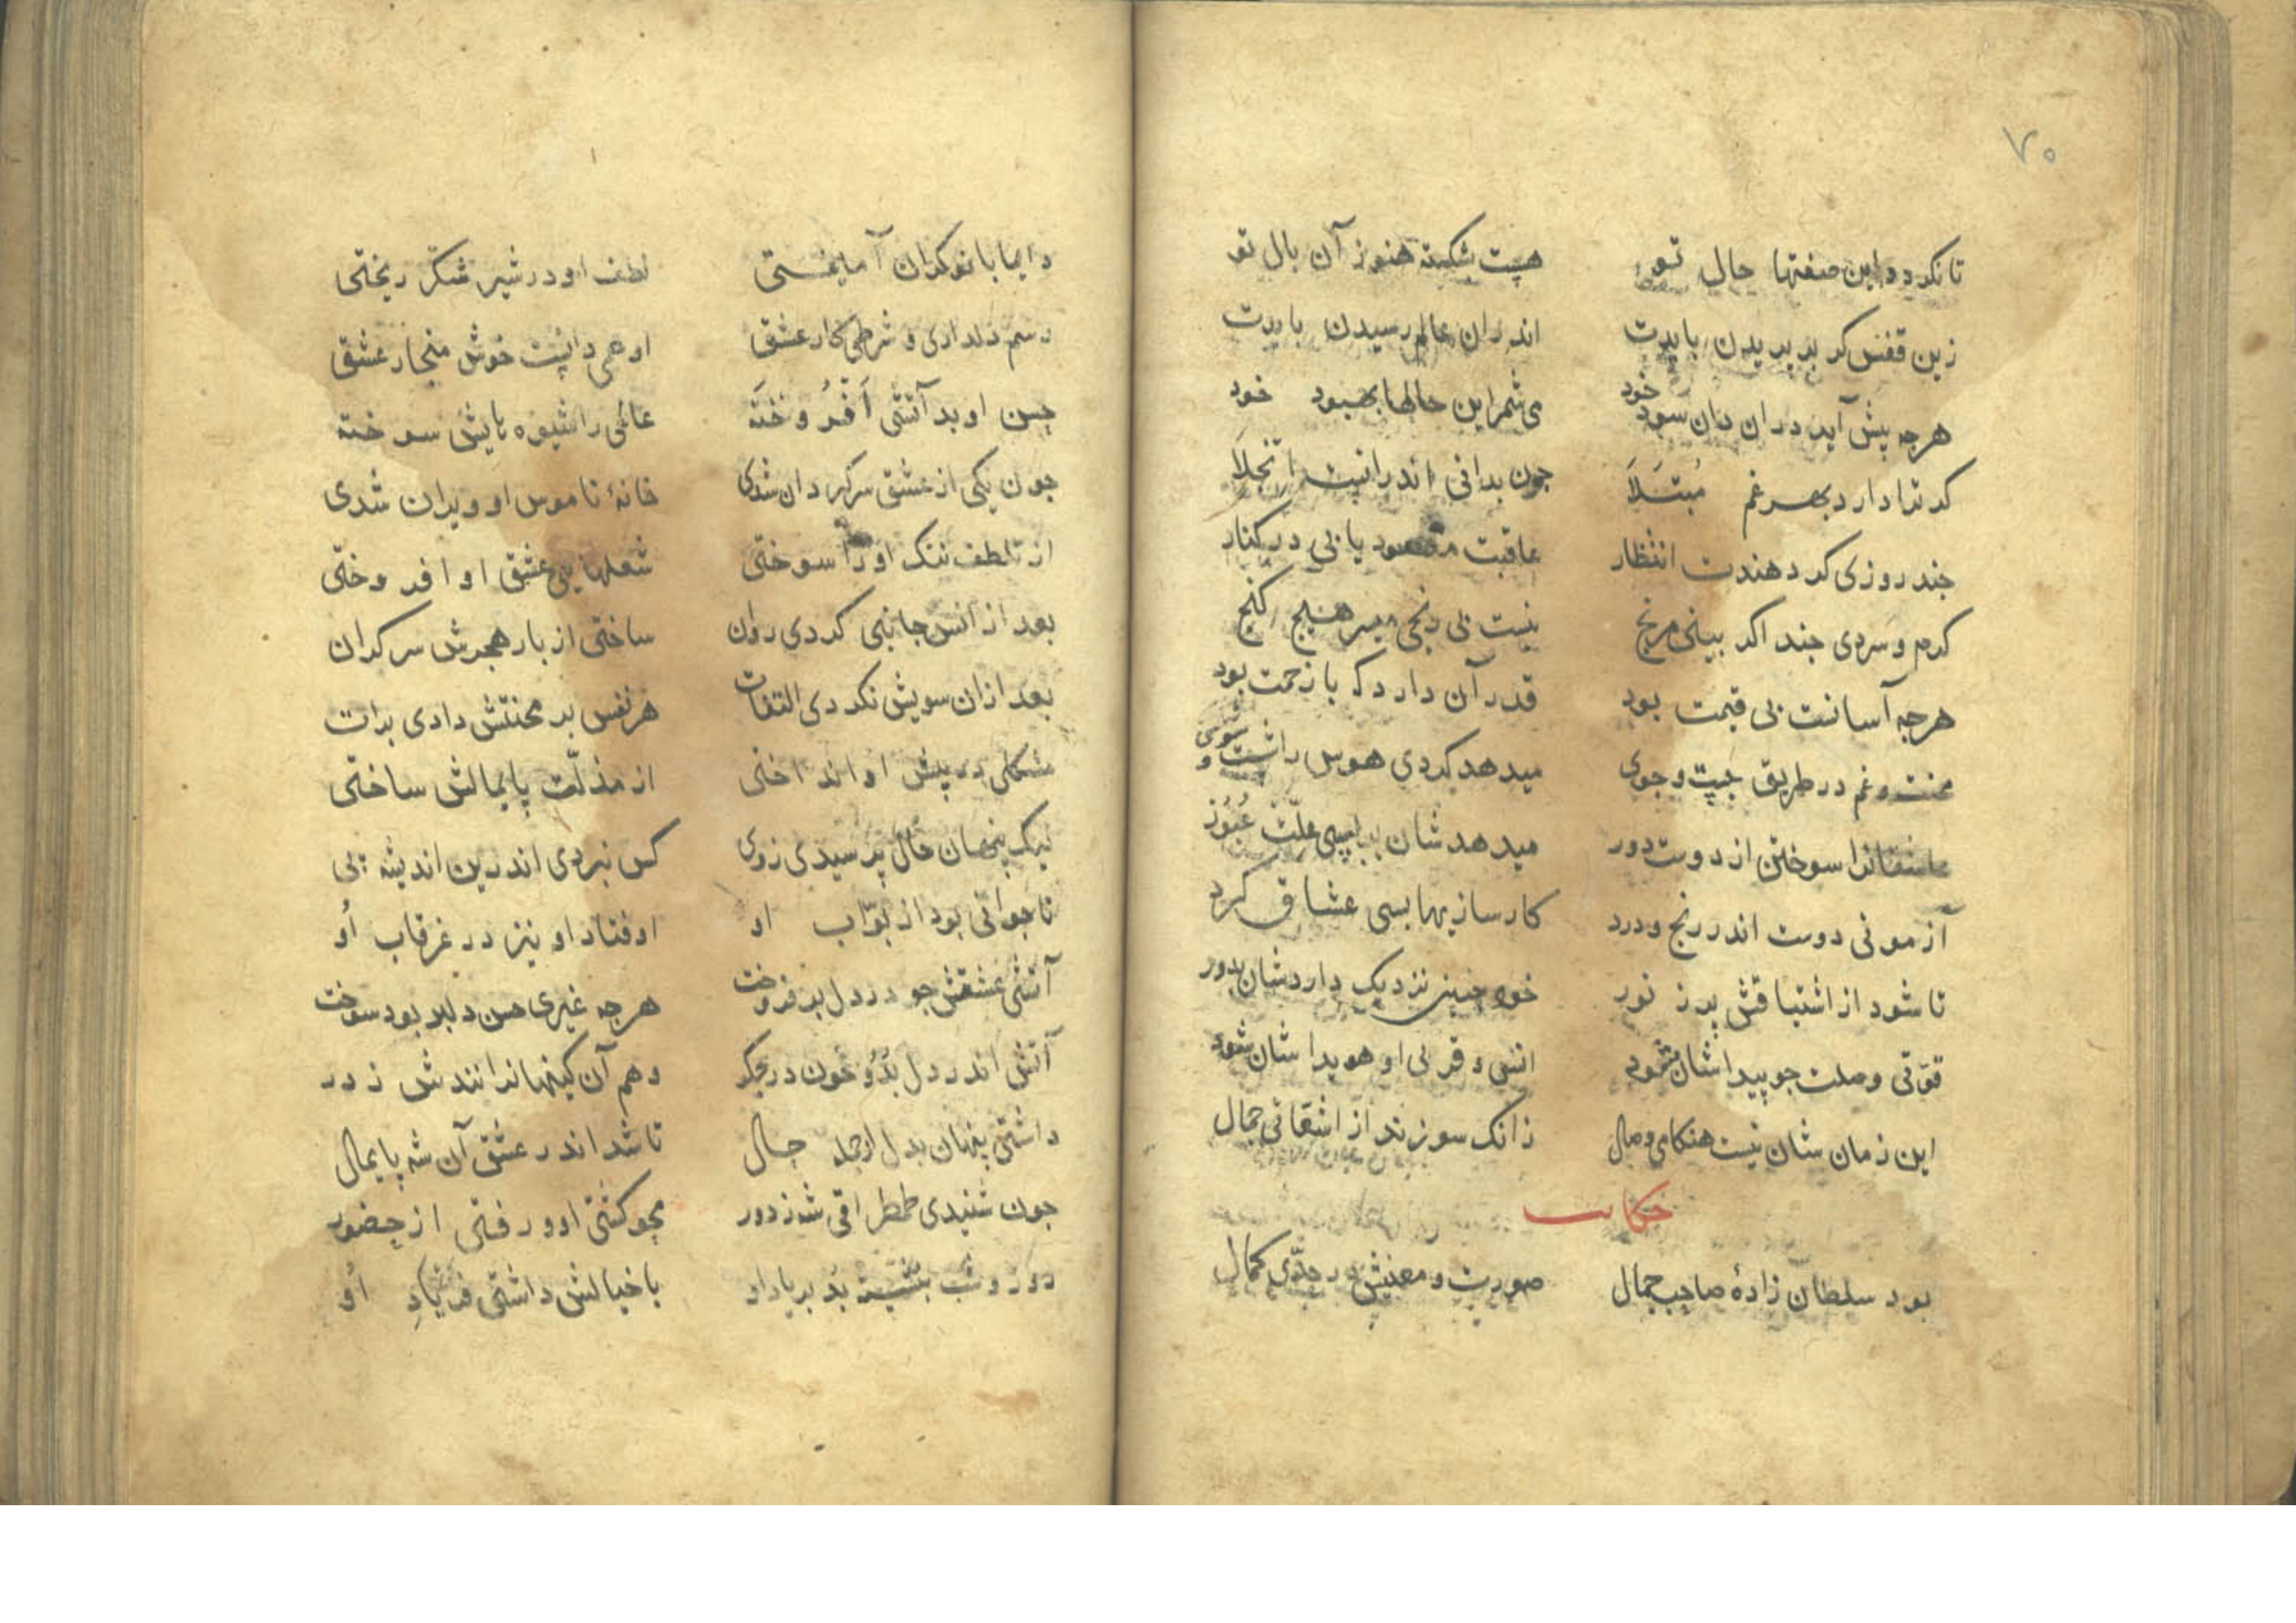 ۷۰
تا نکردد این صفتها حال تو هست بشکسته هنوز آن بال تو
زین قفس کر بر پریدن بایدت اندران عالم رسیدن بایدت
هرجه پیش آید دران دان سود خود می شمر این حالها بهبود خود
کر ترا دارد بهر غم مبتلا جون بدانی اندرانست انجلا
جند روزی کر دهندت انتظار عاقبت مقصود یابی در کنار
کرم و سردی جند اکر بینی مرنج نیست بی رنجی میسر هیج کنج
هرجه آسانست بی قیمت بود قدر آن دارد که با زحمت بود
محنت و غم در طریق جست و جوی میدهد کردی هوس را شست و شوی
عاشقانرا سوختن از دوست دور میدهدشان بسی علت عبور
آزمونی دوست اندر رنج و درد کارسازیها بسی عشاق کرد
تا شود از اشتیاقش پر ز نور خود جنین نزدیک داردشان بدور
قوتی وصلت جو پیدا شان شود انسی و قربی او هویدا شان شود
این زمان شان نیست هنکامی وصال زانک سوزند از اشقاتی جمال
حکایت
بود سلطان زادهٔ صاحب جمال صورت و معنیش در حدی کمال
دایما با نوکران آمیختی لطف او در شیر شکر ریختی
رسم دلداری و شرطی کار عشق او همی دانست خوش منجار عشق
حسن او بد آتشی افروخته عالمی را شیوه هایش سوخته
جون یکی از عشق سرکردان شدی خانهٔ ناموس او ویران شدی
از تلطف ننک او را سوختی شعلهایی عشق او افروختی
بعد از انس جانبی کردی روان ساختی از بار هجرش سرکران
بعد ازان سویش نکردی التفات هر نفس بر محنتش دادی برات
مشکلی در پیش او انداختی از مذلت پایمالش ساختی
لیک پنهان حال پرسیدی ز وی کس نبردی اندرین اندیشه پی
تا جوانی بود از بواب او اوفتاد او نیز در غرقاب او
آتشی عشقش جو در دل بر فروخت هرجه غیری حسن دلبر بود سوخت
آتش اندر دل بد و خون در جکر وهم آن کینهانرانندش ز در
داشتی پنهان بدل از جمله حال تا شد اندر عشق آن شه پایمال
جون شنیدی طمطراقی شه ز دور محو کشتی او و رفتی از حضور
روز و شب بنشسته بد بر یاد او با خیالش داشتی فریاد او